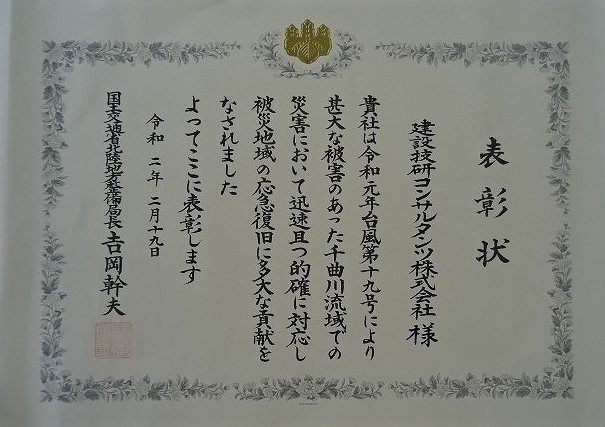 表彰状
建設技研コンサルタンツ株式会社 様
貴社は令和元年台風第十九号により
甚大な被害のあった千曲川流域での
災害において迅速且つ的確に対応し
被災地域の応急復旧に多大な貢献を
なされました
よってここに表彰します
令和 二年 二月十九日
国土交通省北陸地方整備局長 吉岡幹夫